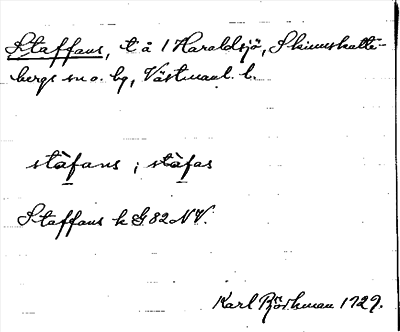 Staffans, t å 1 Haraldsjö, Skinnskatte-
bergs sn o. bg, Västmanl. l.
stàfans ; stàfas
Staffans k G 82 NV.
Karl Björkman 1929.